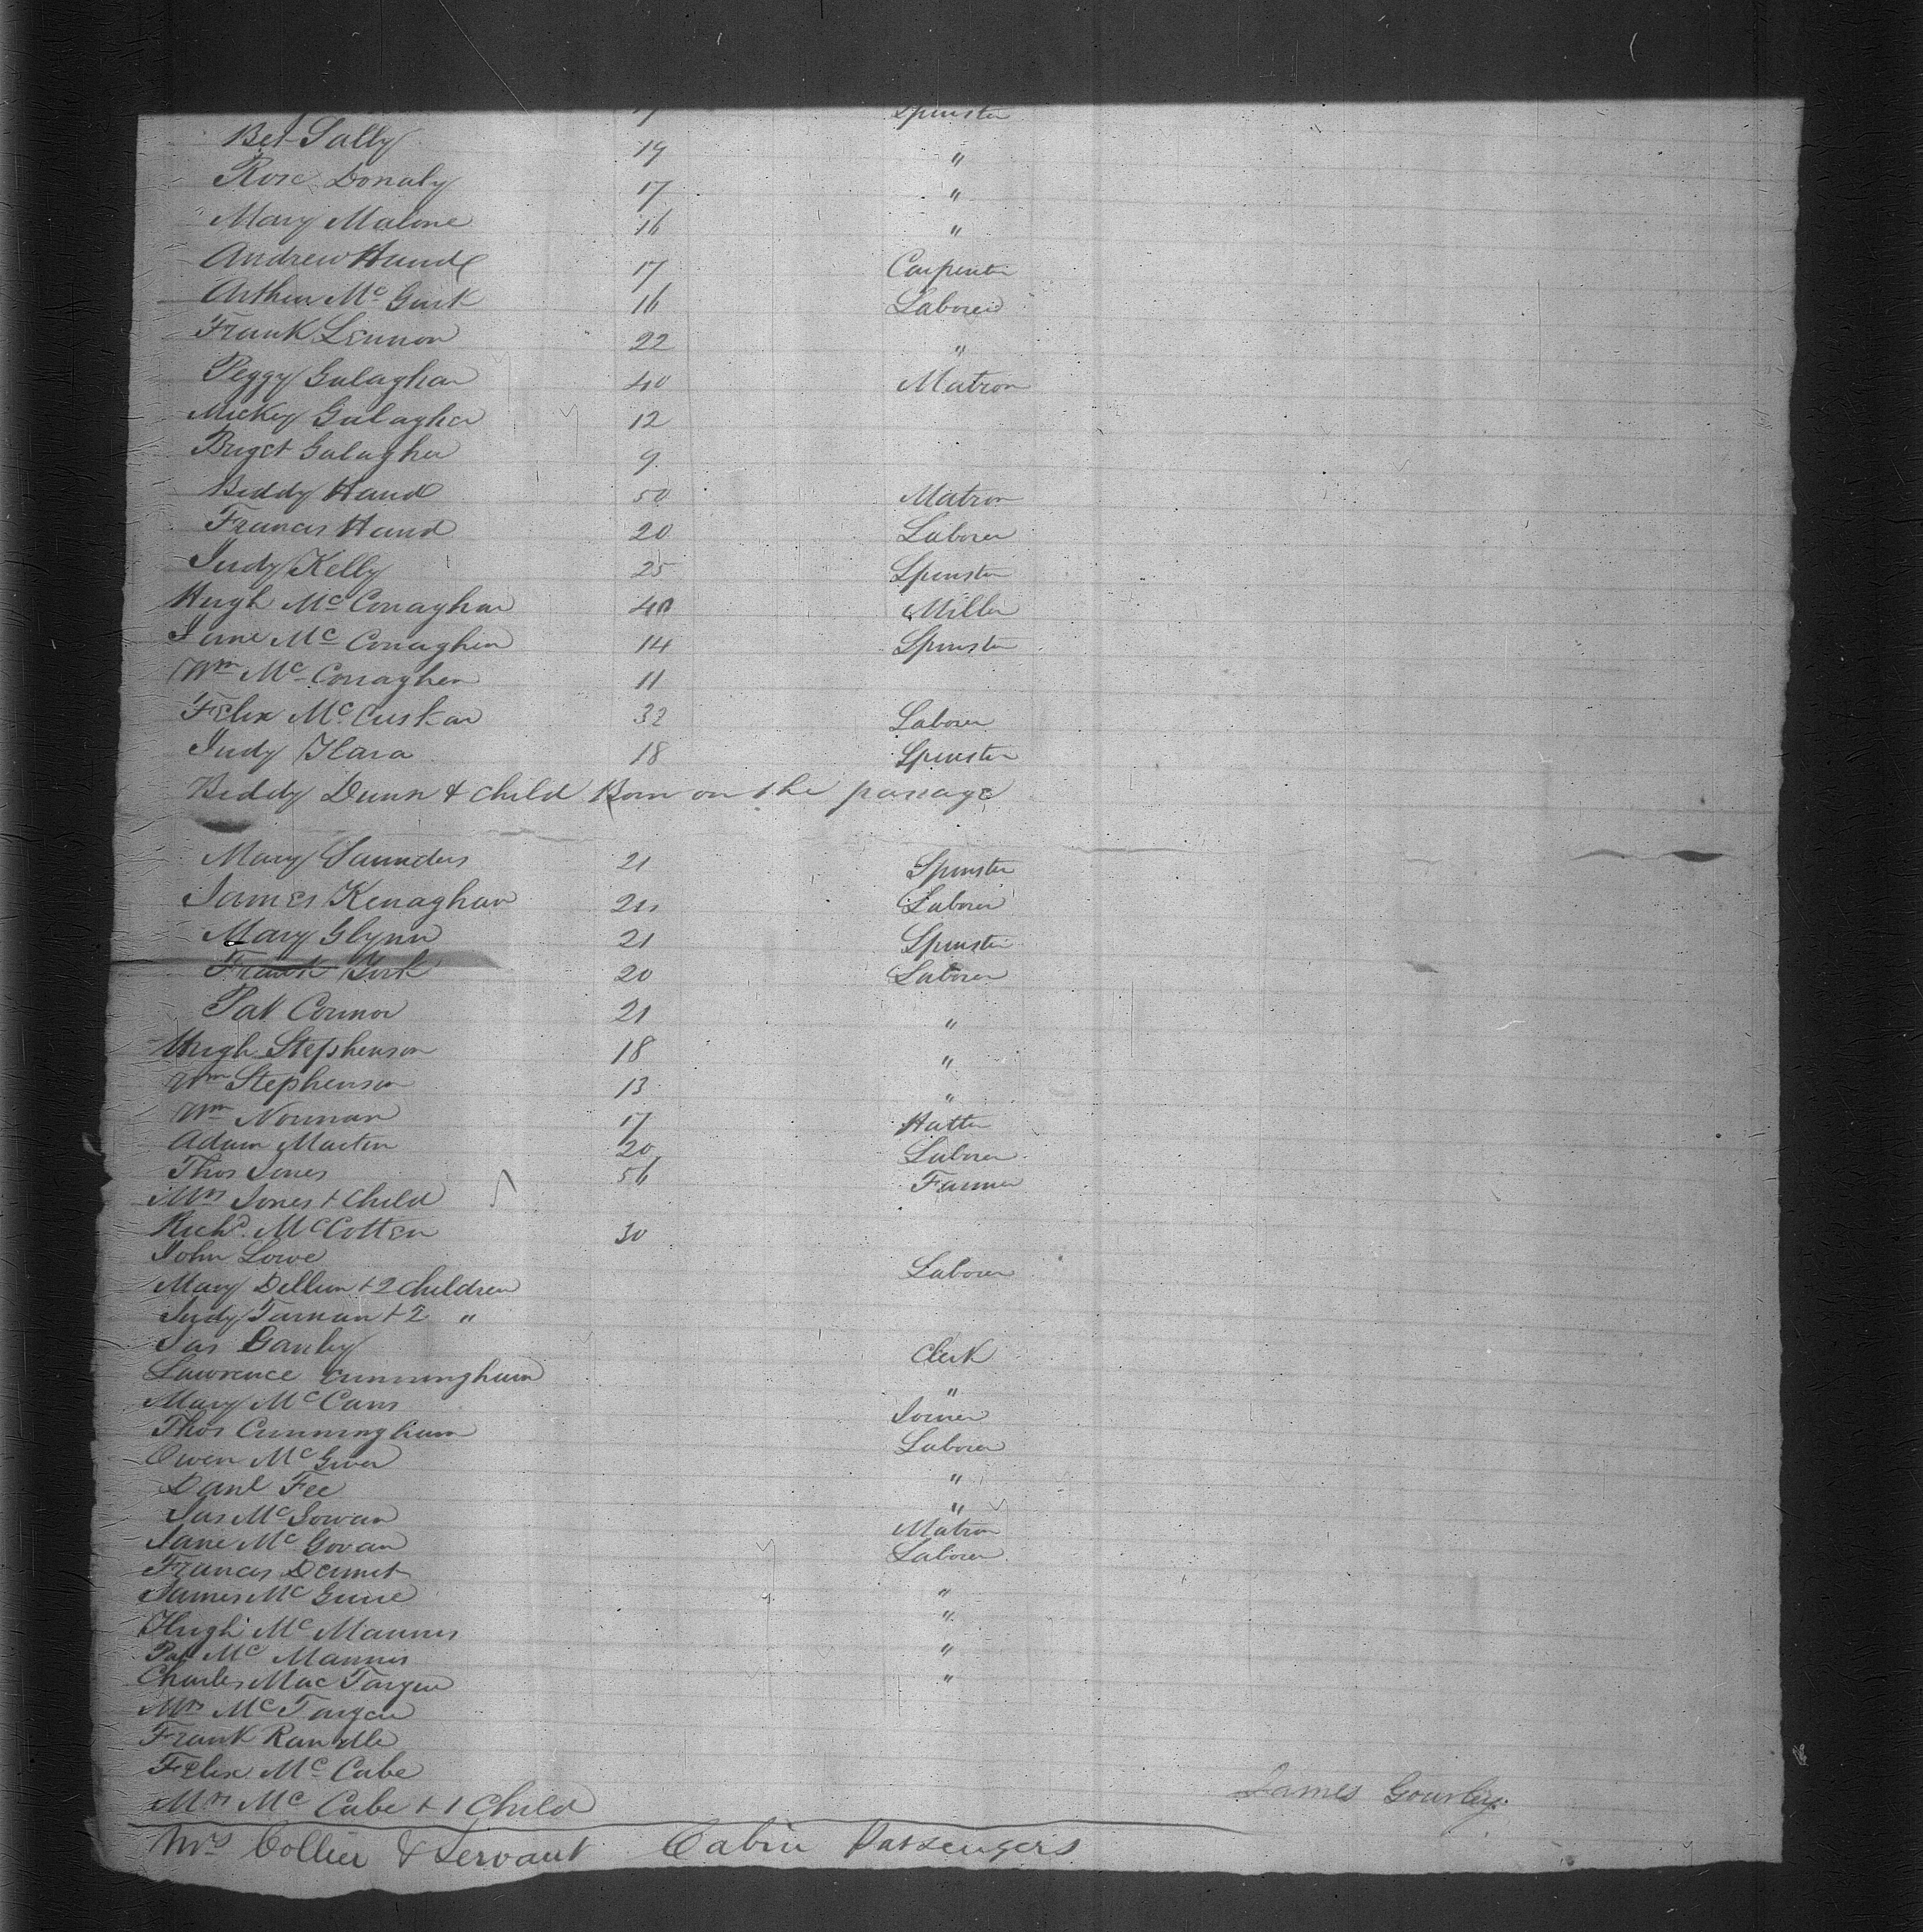 Spinster
Bet Sally 19 "
Rose Donaly 17 "
Mary Malone 16 "
Andrew Hand 17 Carpenter
Arthur Mc Gurk 16 Laborer
Frank Lennon 22 "
Peggy Galaghar 40 Matron
Mickey Galagher 12
Briget Galagher 9
Biddy Hand 50 Matron
Francis Hand 20 Laborer
Judy Kelly 25 Spinster
Hugh Mc Conaghan 40 Miller
Jane Mc Conaghen 14 Spinster
Wm Mc Conaghen 11
Felix Mc Cuskar 32 Laborer
Judy Hara 18 Spinster
Biddy Dunn & child Born on the passage
Mary Saunders 21 Spinster
James Kenaghan Laborer
Mary Glynn 21 Spinster
Frank 20 Laborer
Pat Connor 21 "
Hugh Stephenson 18 "
Wm Stephenson 13 "
Wm Norman 17 Hatter
Adam Martin 20 Laborer
Thos Jones 56 Farmer
Mrs Jones & Child
Richd. McCotten 30
John Lowe Laborer
Mary Dellun & 2 children
Judy Tarnan & 2 "
Jas Ganley Clerk
Lawrence Cunningham "
Mary Mc Cann Joiner
Thos Cunningham Laborer
Owen Mc Giver "
Danl Fee "
Jas Mc Gowan Matron
Jane Mc Govan Laborer
Francis Dermet
James Mc Guire "
Hugh Mc Mannus "
Pat Mc Mannus "
Charles Mac Targen "
Mrs McTargen
Frank Randle
Felix Mc Cabe
Mrs Mc Cabe & 1 Child
James Gourley
Mrs Collier & Servant Cabin Passengers